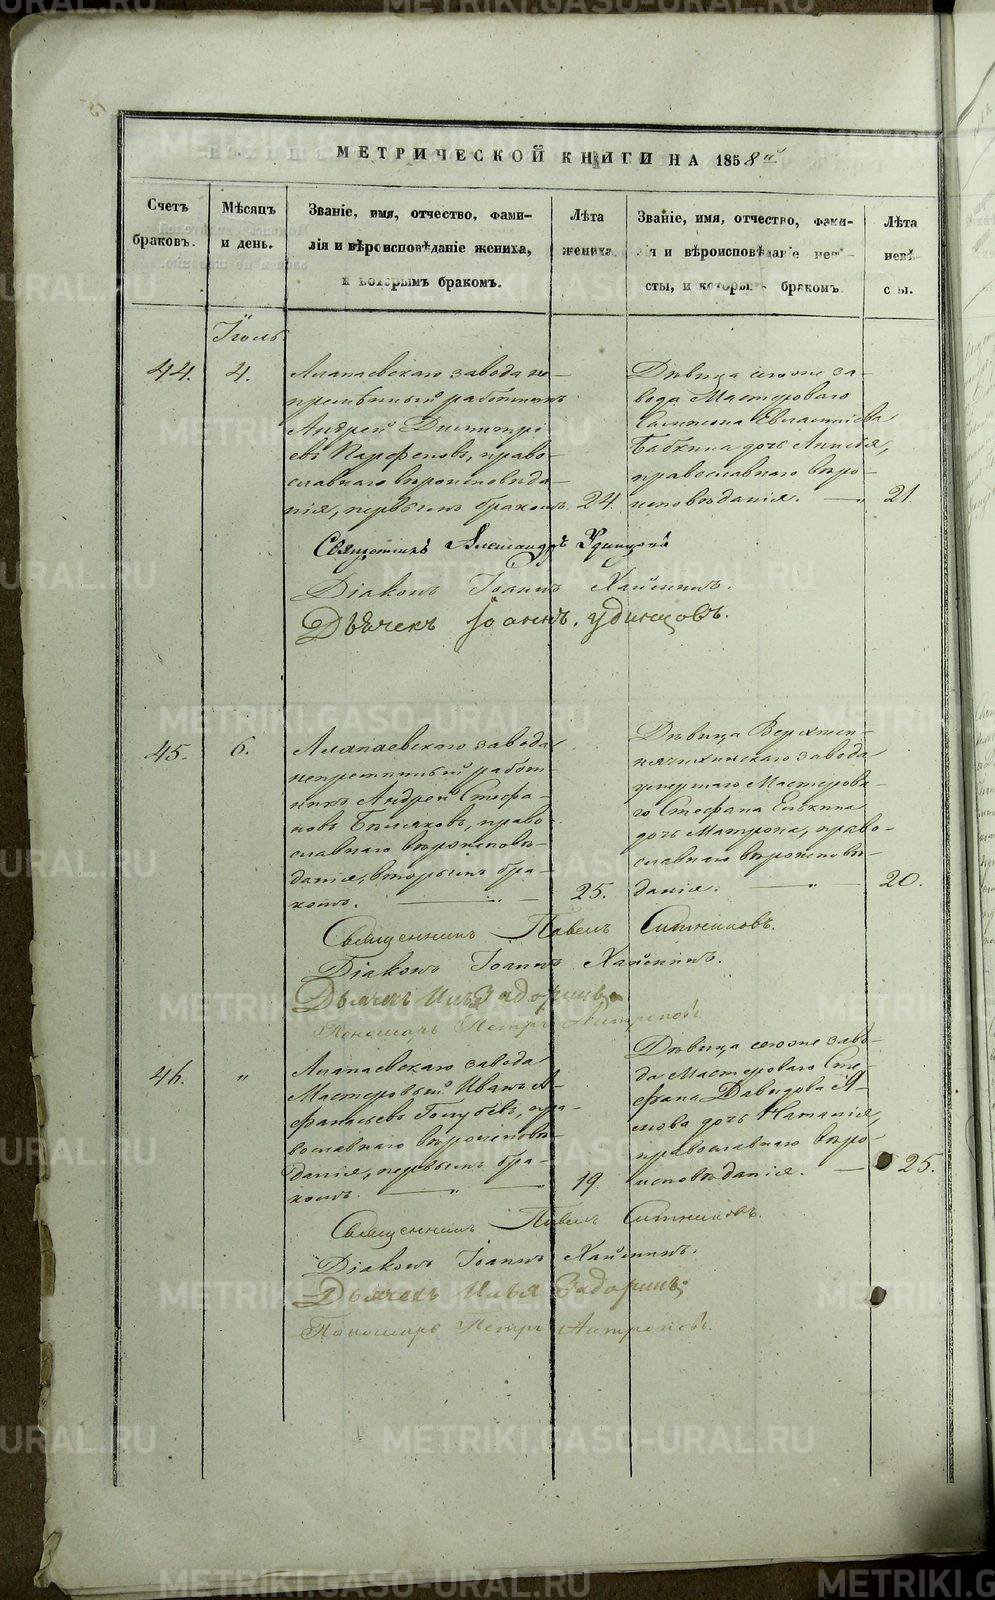 МЕТРИЧЕСКОЙ КНИГИ НА 1858й
Счетъ браковъ.
Мѣсяцъ и день.
Званіе, имя, отчество, фами-
лія и вѣроисповѣданіе жениха,
и которымъ бракомъ.
Лѣта жениха
Званіе, имя, отчество, фами-
лія и вѣроисповѣданіе невѣ-
сты, и которымъ бракомъ
Лѣта невѣсты.
Іюль.
44.
4.
Алапаевскаго завода не-
премѣнный работникъ
Андрей Димитрі
евъ Парфеновъ, право-
славнаго вѣроисповѣда-
нія, первымъ бракомъ.
24.
Дѣвица сегоже за-
вода Мастероваго
Бабкина дочь
православнаго вѣро-
исповѣданія.
21
Священникъ Александръ Удинцовъ
Діаконъ Іоаннъ
Дьячекъ Іоаннъ Удинцовъ.
45.
6.
Алапаевскаго завода
непремѣнный работ-
никъ Андрей Стефа-
новъ право-
славнаго вѣроисповѣ-
данія, вторымъ бра-
комъ.
25.
Дѣвица Верхне-
завода
умершаго Мастерова-
го Стефана
дочь Матрона, право-
славнаго вѣроисповѣ-
данія.
20.
Священникъ Павелъ Ситниковъ.
Діаконъ Іоаннъ
Дьячекъ Илья Задоринъ
Пономарь Петръ Антроповъ
46.
"
Алапаевскаго завода
Мастеровый Иванъ А-
фанасьевъ Голубевъ, пра-
вославнаго вѣроисповѣ-
данія, первымъ бра-
комъ.
19.
Дѣвица сегоже заво-
да Мастероваго Сте-
фана Давыдова
дочь Наталія,
православнаго вѣро-
исповѣданія.
25.
Священникъ Павелъ Ситниковъ.
Діаконъ Іоаннъ
Дьячекъ Илья Задоринъ
Пономарь Петръ Антроповъ.
METRIKI.GASO-URAL.RU